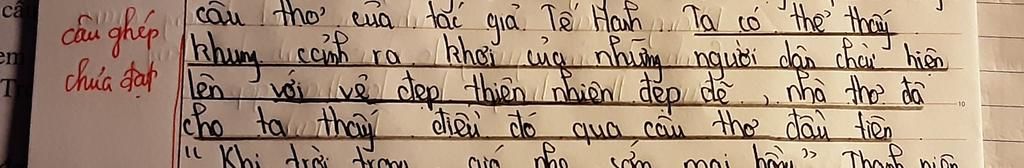 câu thơ của tác giả Tế Hanh. Ta có thể thấy
câu ghép
chưa đạt
khung cảnh ra khơi của những người dân chài hiện
lên với vẻ đẹp thiên nhiên đẹp đẽ, nhà thơ đã
cho ta thấy điều đó qua câu thơ đầu tiên
10
"Khi trời trong gió nhẹ sớm mai hồng" Thanh niên